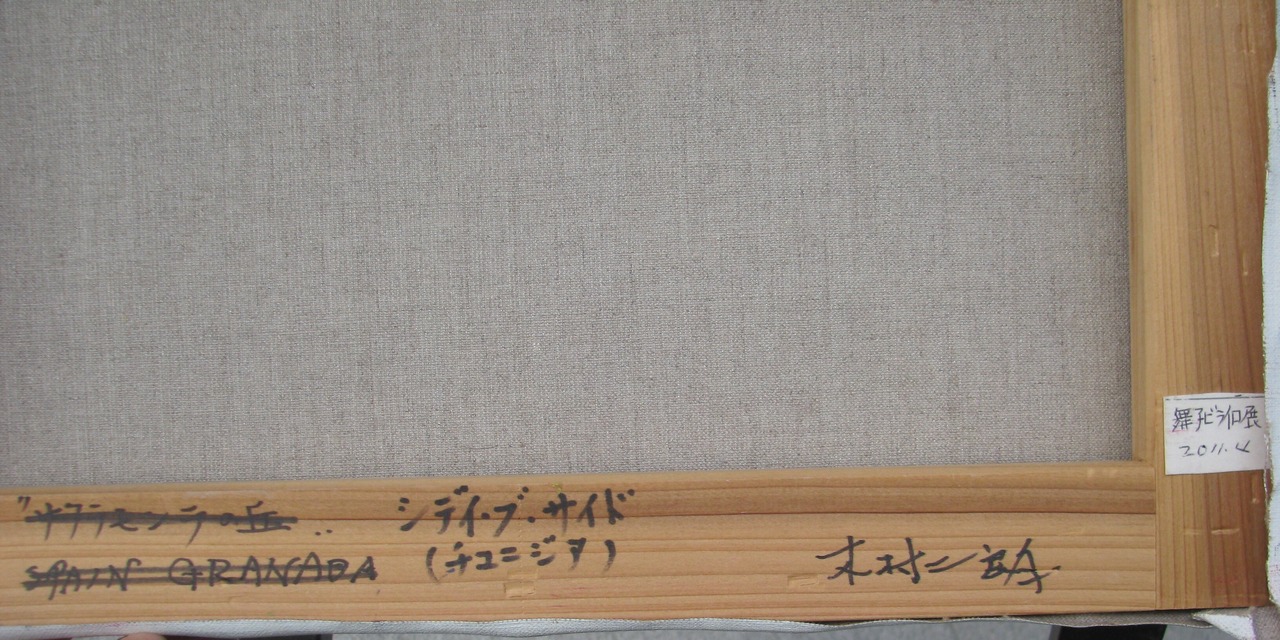 "サクラモンテの丘
SPAIN GRANADA
シディ・ブ・サイド
(チュニジア)
木村二
2011.4